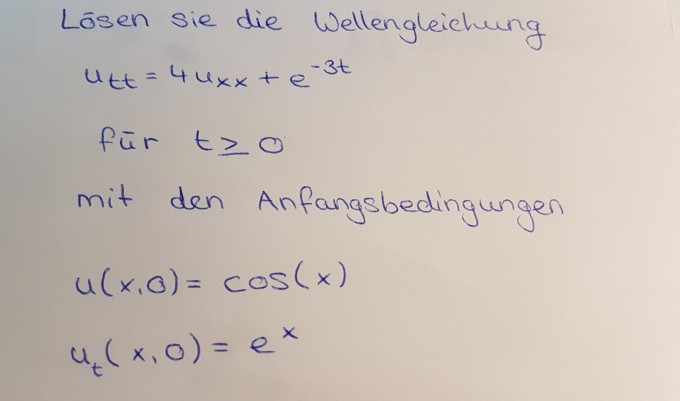 Lösen sie die Wellengleichung
u_tt = 4u_xx + e^-3t
für t ≥ 0
mit den Anfangsbedingungen
u(x,0) = cos(x)
u_t(x,0) = e^x